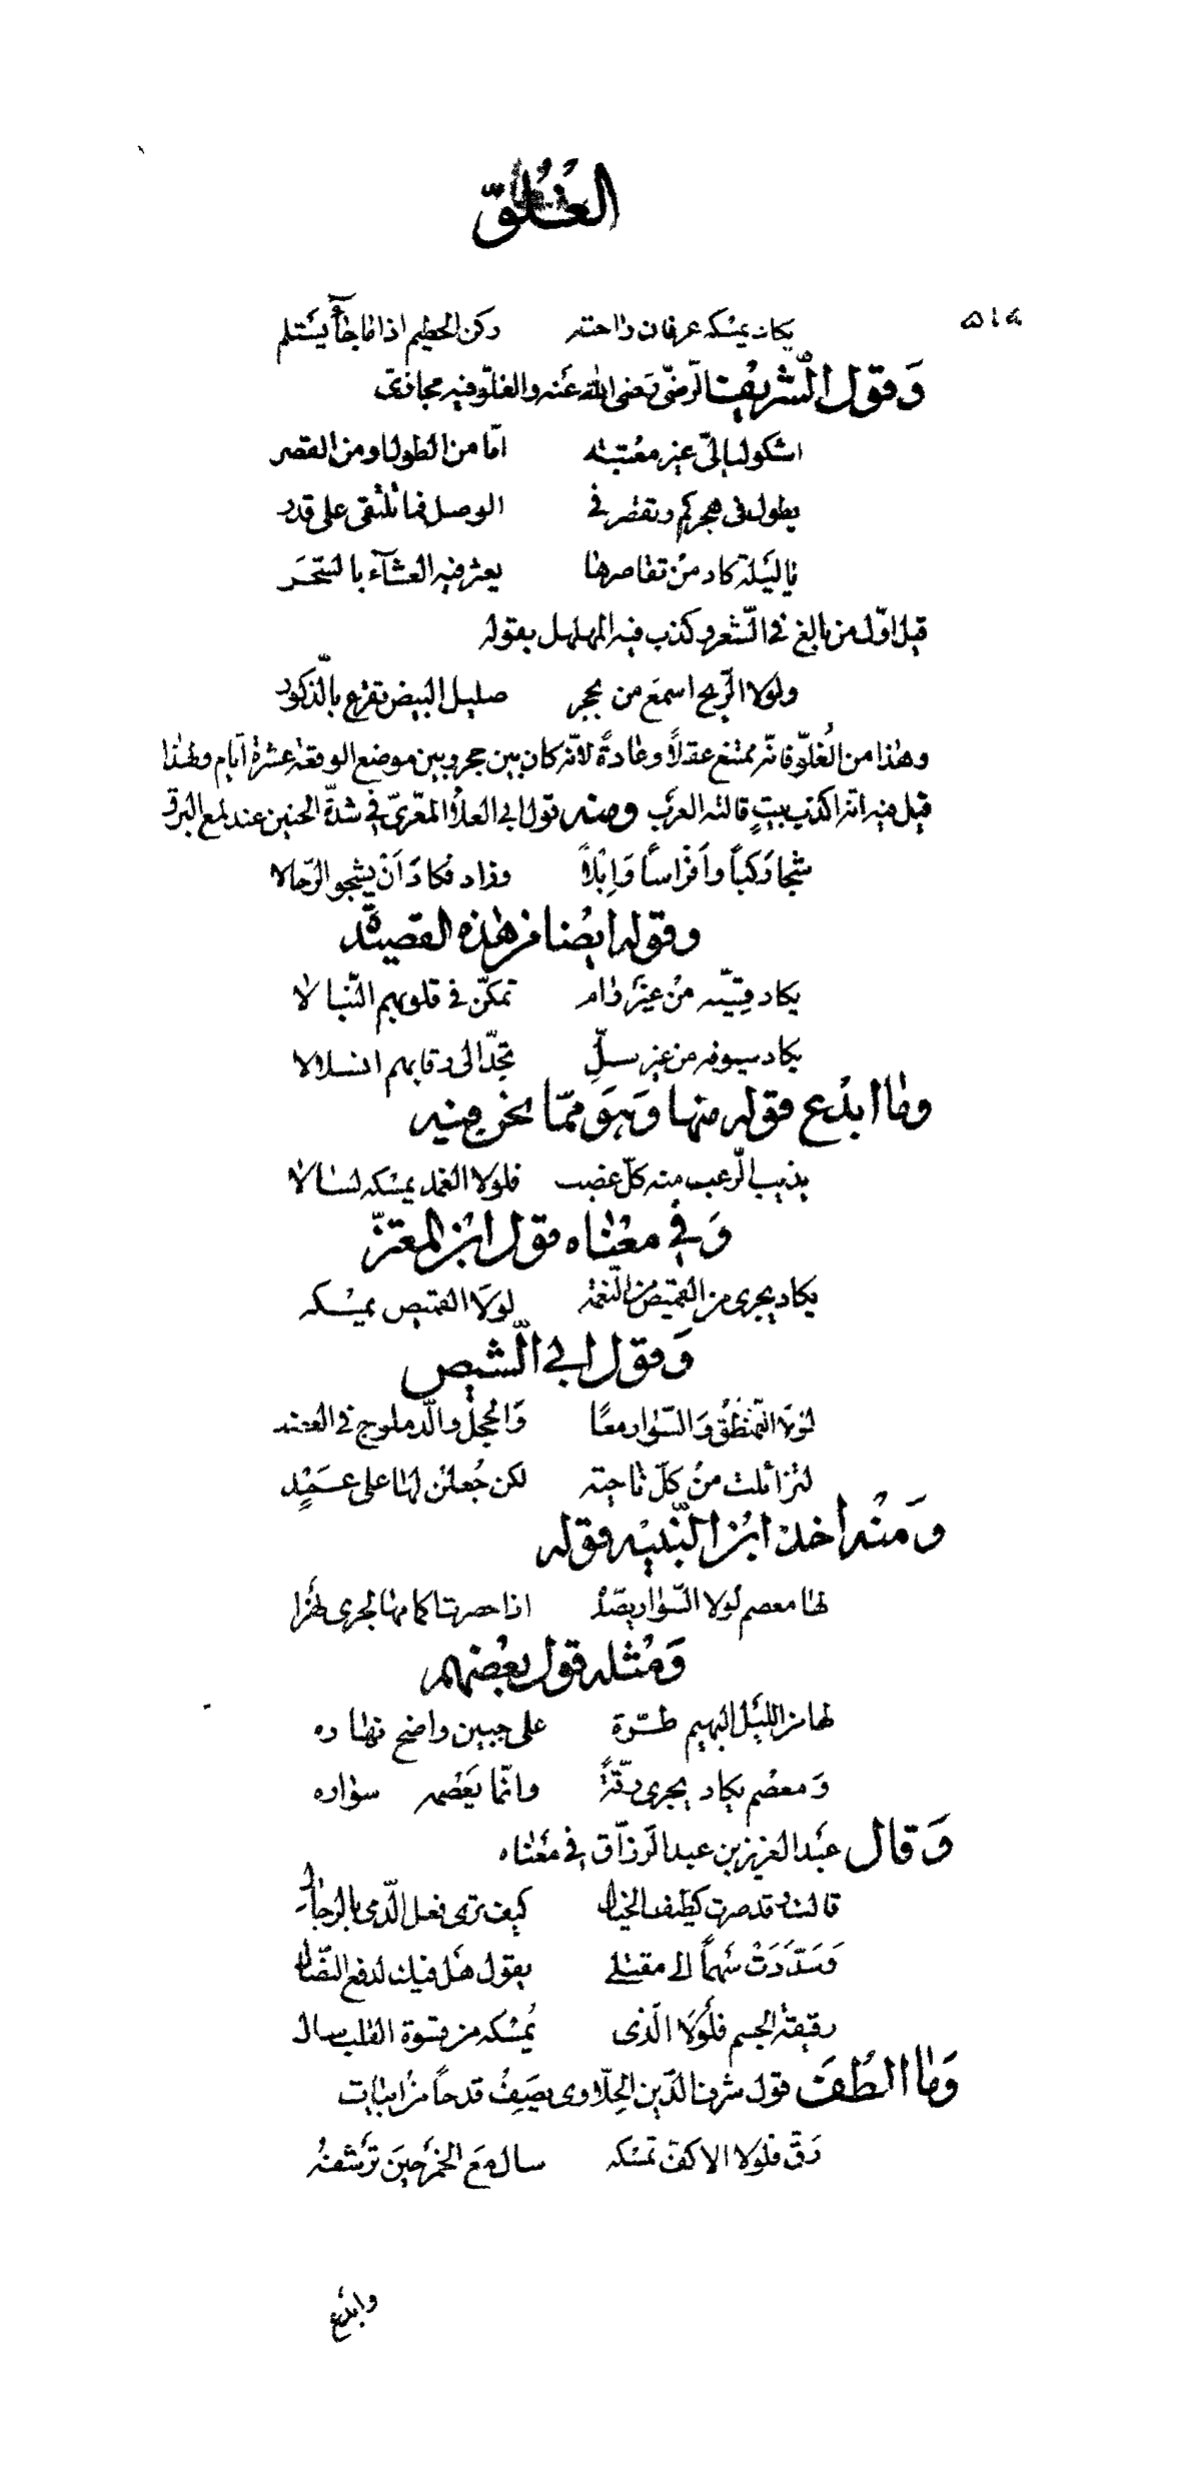 الغُلُوّ
٥١٤
يكاد يمسكه عرفان راحته ركن الحطيم اذا ما جاء يستلم
وقول الشريف الرضيّ رضى الله عنه والغلوّ فيه مجازى
اشكو ليالىّ غير معتبة امّا من الطول او من القصر
يطول فى هجركم وتقصر فى الوصل فما نلتقى على قدر
يا ليلة كاد من تقاصرها يعثر فيها العشآء بالسّحَر
قيل اوّل من بالغ فى الشّعر وكذب فيه المهلهل بقوله
ولولا الرّيح اسمع من بحجر صليل البيض تقرع بالّذكور
وهذا من الغُلوّ فانّه ممتنع عقلاً وعادةً لانّه كان بين حجر وبين موضع الوقعة عشرة ايّام ولهذا
قيل فيه انّه اكذب بيتٍ قالته العرب ومنه قول ابى العلاء المعّرىّ فى شدّة الحنين عند لمع البرق
شجا رَكباً وأفراسًا وَإبْلاً وزاد فكادَ أنْ يشجو الرّحالا
وقوله ايضا من هذه القصيدة
يكاد قِسيّه من غير رام تمكّن فى قلوبهم النّبالا
يكاد سيوفه من غير سلّ تجدّ الى رقابهم انسلالا
وما ابدع قوله منها وَهو ممّا نحن فيه
يذيب الرّعب منه كلّ عضب فلولا الغمد يمسكه لسالا
وَفى معناه قول ابن المعتزّ
يكاد يجرى من القميص من النّعمة لولَا القميص يمسكه
وَقول ابى الشّيص
لولا التّمنطُق وَالسّوار معًا وَالحجل والدّملوج فى العضد
لتزائلت من كلّ ناحية لكن جُعلن لها على عَمَدٍ
وَمنه اخذ ابن النّبيه قوله
لها معصم لولا السّوار يصدّه اذا حسرت اكمامها لجرى نهرا
وَمثله قول بعضهم
لها من الليل البهيم طرّة على جبين واضح نهاره
وَمعصم يكاد يجرى رقّةً وانّما يَعْصمه سواره
وَقال عبد العزيز بن عبد الرّزّاق فى معناه
قالت وقد صرت كطيف الخيال كيف ترى فعل الّذى بالرجال
وَسَدّدَتْ سَهماً الى مقتلى بقول هل فيك لدفع النّضال
رقيقة الجسم فلولا الّذى يُمسكه من قسوة القلب سال
وَما الطفَ قول شرف الدّين الحِلّاوى يصف قدحاً من ابيات
رَقّ فلولا الاكفّ تمسكه سال مع الخمر حين ترشفهُ
وابدع